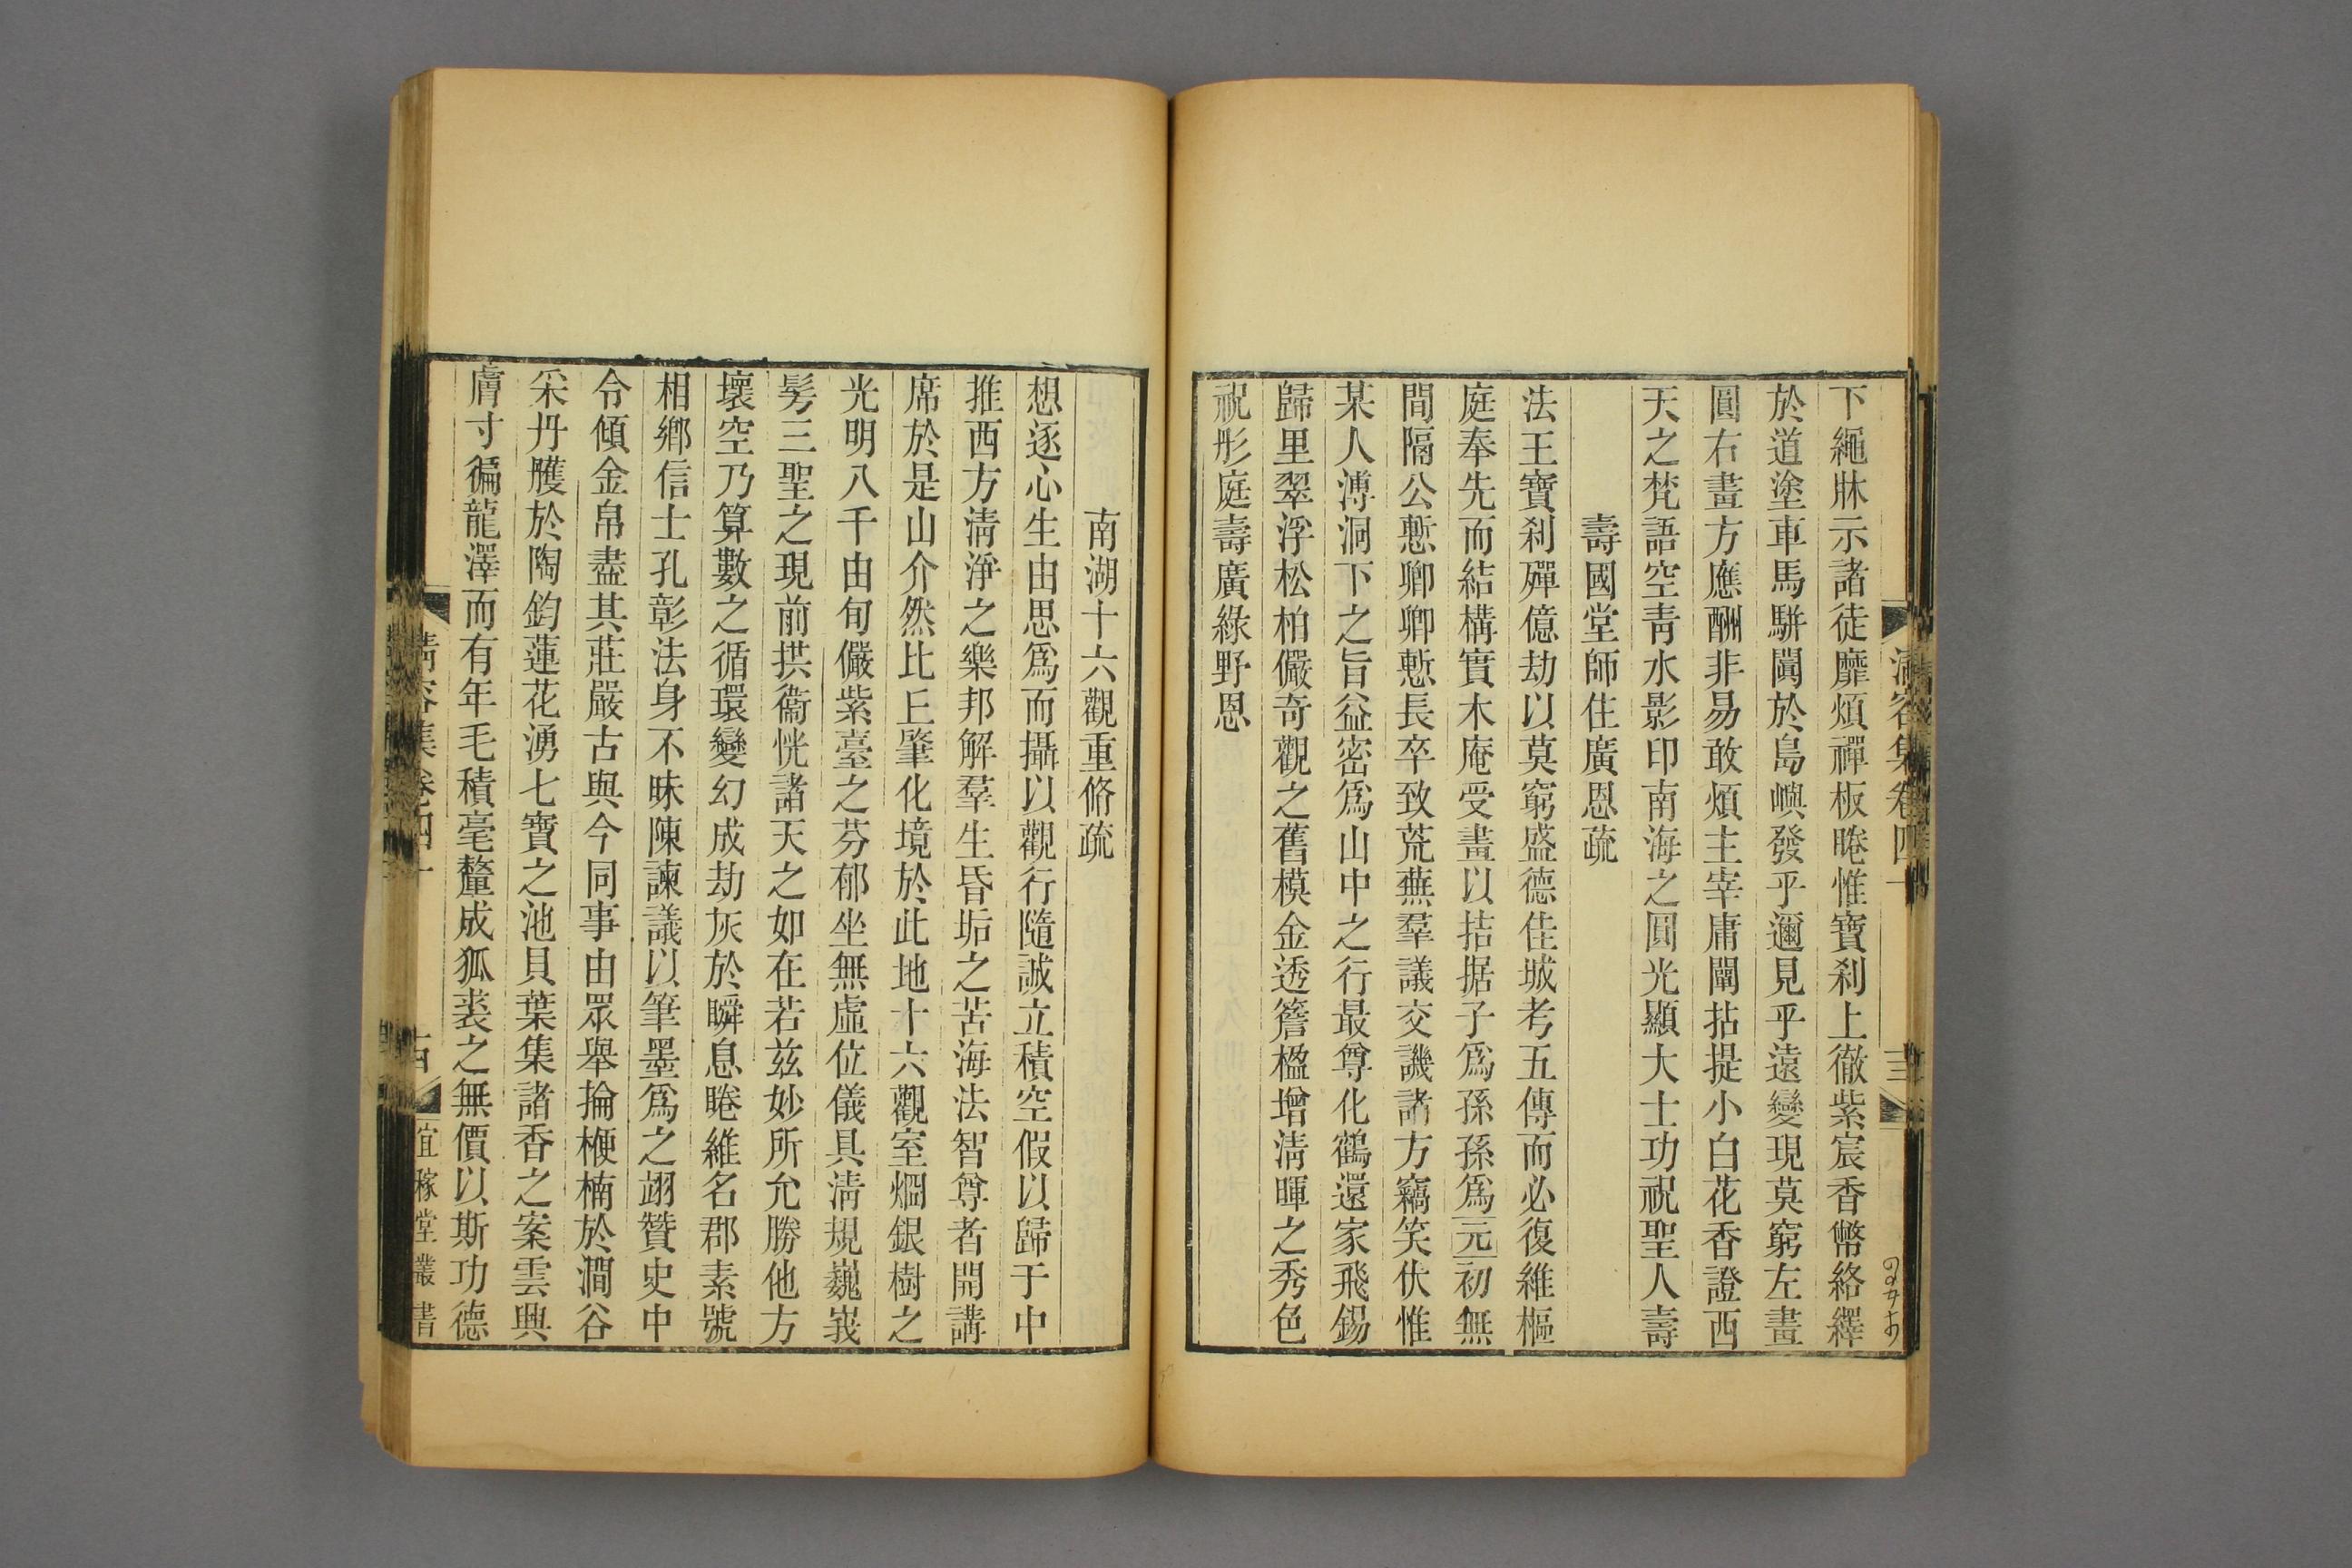 下繩牀示諸徒靡煩禪板睠惟寶刹上徹紫宸香幣絡繹
於道塗車馬駢闐於島嶼發乎邇見乎遠變現莫窮左畫
圓右畫方應酬非易敢煩主宰庸闡拈提小白花香證西
天之梵語空靑水影印南海之圓光顯大士功祝聖人壽
壽國堂師住廣恩疏
法王寶刹殫億劫以莫窮盛德佳城考五傳而必復維樞
庭奉先而結構實木庵受畫以拮据子爲孫孫爲元初無
間隔公慙卿卿慙長卒致荒蕪羣議交譏諸方竊笑伏惟
某人溥洞下之旨益密爲山中之行最尊化鶴還家飛錫
歸里翠浮松柏儼奇觀之舊模金透簷楹增淸暉之秀色
祝彤庭壽廣綠野恩
南湖十六觀重脩疏
想逐心生由思爲而攝以觀行隨誠立積空假以歸于中
推西方淸淨之樂邦解羣生昏垢之苦海法智尊者開講
席於是山介然比丘肇化境於此地十六觀室烱銀樹之
光明八千由旬儼紫臺之芬郁坐無虛位儀具淸規巍峩
髣三聖之現前拱衞恍諸天之如在若兹妙所允勝他方
壞空乃算數之循環變幻成劫灰於瞬息睠維名郡素號
相鄉信士孔彰法身不昧陳諫議以筆墨爲之翊贊史中
令傾金帛盡其莊嚴古與今同事由眾舉掄楩楠於澗谷
采丹臒於陶鈞蓮花湧七寶之池貝葉集諸香之案雲興
膚寸徧龍澤而有年毛積毫釐成狐裘之無價以斯功德
淸容集卷四十
宜稼堂叢書